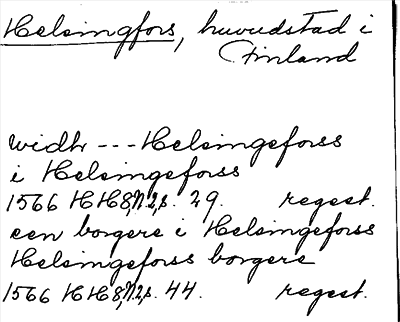 Helsingfors, huvudstad i
Finland
widh --- Helsingeforss
i Helsingeforss
1566 HH8,N:2,s. 29. regest.
een borgere i Helsingeforss
Helsingeforss borgere
1566 HH8,N:2,s. 44. regest.